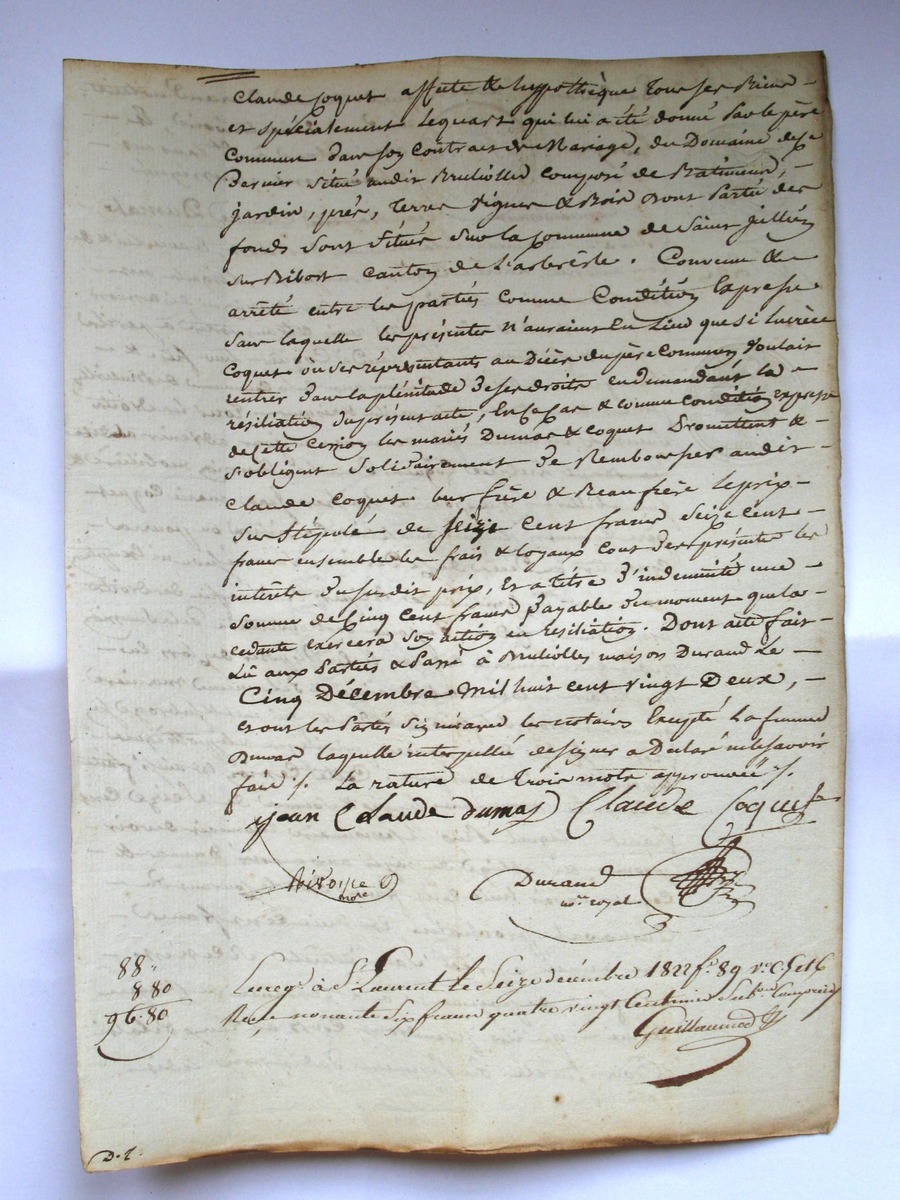 Claude Coquet affecte & hypothèque tous ses Biens
et spécialement le quart qui lui a été donné par le père
commun dans son contrat de Mariage, du Domaine de ce
dernier situé audit Brullioles composé de Batiments,
jardin, prés, terres vignes & Bois dont partie des
fonds sont situés sur la commune de Saint jullien
sur Bibost canton de Larbresle. Convenu &
arrêté entre les parties comme Condition Expresse
sans laquelle les présentes n'auraient Eu Lieu que si lucrèce
Coquet où ses réprésentants au Décès du père commun Voulait
rentrer dans la plénitude de ses droits en demandant la
résiliation du présent acte, En ce Cas & comme condition expresse
de cette Cession les mariés Dumas & Coquet Promettent &
s'obligent solidairement de Rembourser audit
Claude Coquet leur frère & Beau frère le prix
sus stipulé de seize Cent francs seize cent
francs ensemble les frais & loyaux cout des présentes les
intérêts du susdit prix, Et a titre d'indemnité une
somme de Cinq Cent francs payable du moment que la
cedante exercera son action en résiliation. Dont acte fait
Lû aux Parties & Passé à Brulioles maison Durand Le
Cinq Décembre Mil huit cent vingt Deux,
et ont les Parties signé avec les notaires Excepté La femme
Dumas laquelle interpellée de signer a Déclaré ne le savoir
faire /. La rature de trois mots approuvée /.
jean Claude dumas Claude Coquet
Durand
nre royal
88"
8 80
96.80
Enregé à St Laurent le Seize décembre 1822 fo 89 vo C. 5 et 6
Reçu nonante six francs quatre vingt Centimes Subon Comprise
Guillaumod